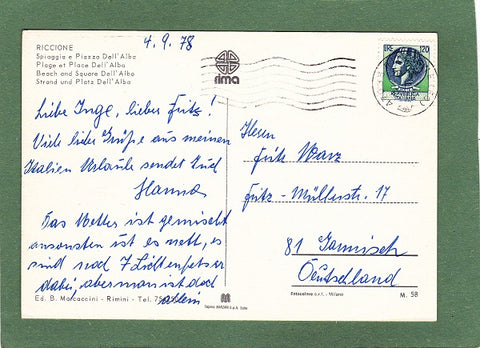 4.9.78
RICCIONE
Spiaggia e Piazza Dell'Alba
Plage et Place Dell'Alba
Beach and Square Dell'Alba
Strand und Platz Dell'Alba
rima
LIRE 120
Liebe Inge, lieber Fritz!
Viele liebe Grüße aus meinem
Italien Urlaub sendet Euch
Hanna
Das Wetter ist gemischt
ansonsten ist es nett, es
sind noch 7
dabei, aber man ist doch
allein
Herrn
Fritz
Fritz-Müllerstr. 17
81 Garmisch
Deutschland
Ed. B. Marcaccini - Rimini - Tel.
Fotocolore s.r.l. - Milano
M. 58